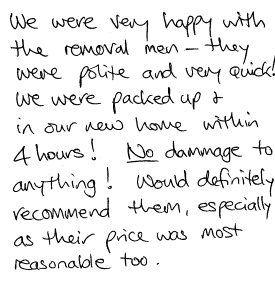 We were very happy with
the removal men – they
were polite and very quick!
We were packed up &
in our new home within
4 hours! No dammage to
anything! Would definitely
recommend them, especially
as their price was most
reasonable too.